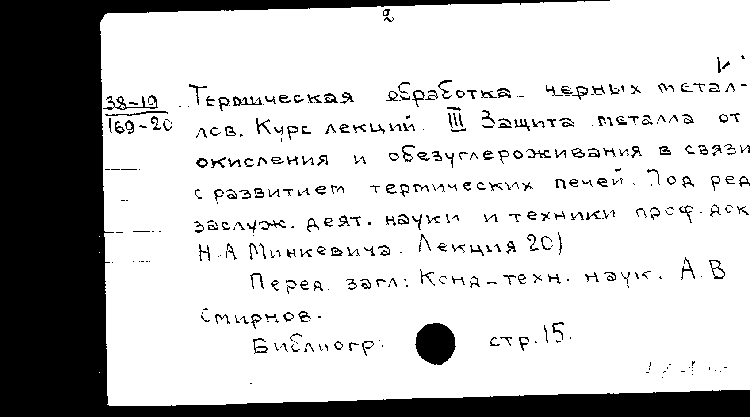 2
38-19 Термическая обработка черных метал-
169-20 лов. Курс лекций. III Защита металла от
окисления и обезуглероживания в связи
с развитием термических печей. Под ред
заслуж. деят. науки и техники проф. док
Н.А Минкевича. Лекция 20)
Перед загл: Канд-техн. наук. А.В
Смирнов.
Библиогр: стр.15.